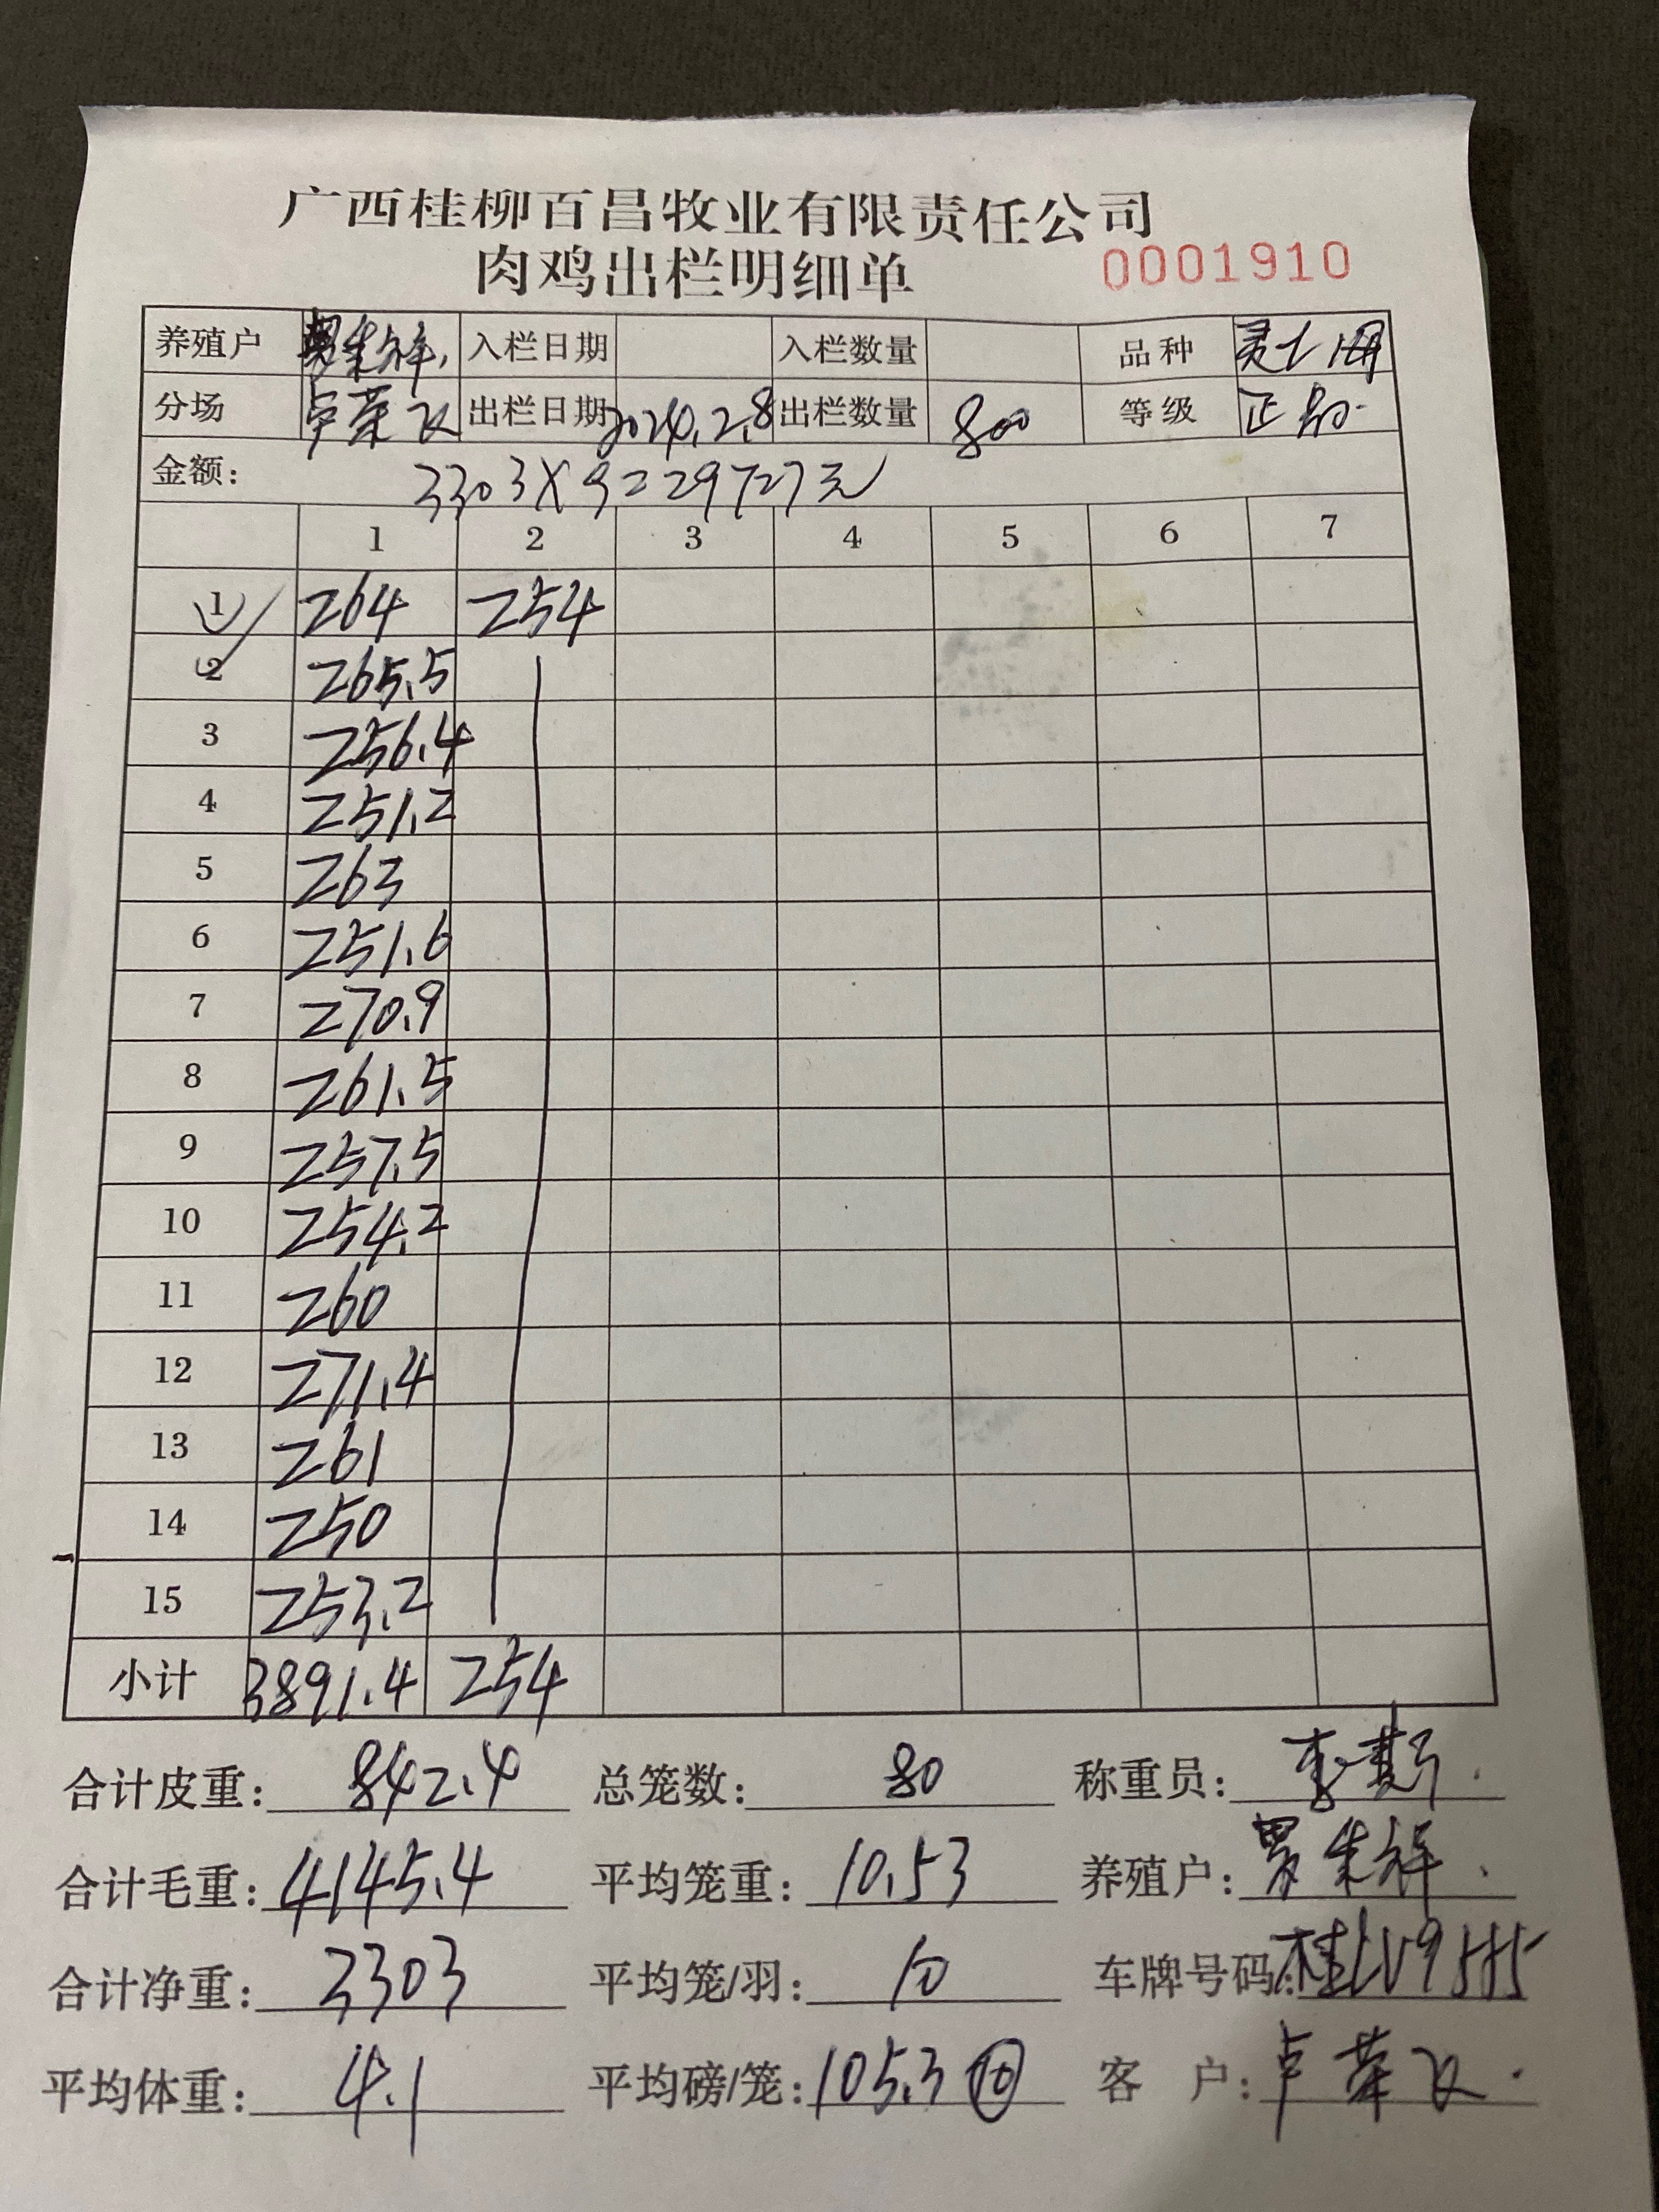 广西桂柳百昌牧业有限责任公司
肉鸡出栏明细单 0001910
养殖户 入栏日期 入栏数量 品种
分场 卢荣飞 出栏日期 2024.2.8 出栏数量 800 等级 正品
金额: 3303X9=29727元
1 2 3 4 5 6 7
1 264 254
2 265.5
3 256.4
4 251.2
5 263
6 251.6
7 270.9
8 261.5
9 257.5
10 254.2
11 260
12 271.4
13 261
14 250
15 253.2
小计 3891.4 254
合计皮重: 842.4 总笼数: 80 称重员:
合计毛重: 4145.4 平均笼重: 10.53 养殖户:
合计净重: 3303 平均笼/羽: 10 车牌号码:
平均体重: 4.1 平均磅/笼: 105.3 ⑩ 客 户: 卢荣飞